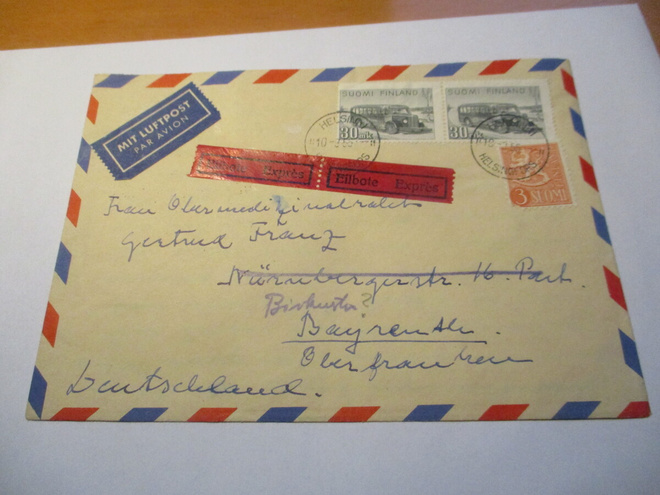 MIT LUFTPOST
PAR AVION
SUOMI FINLAND
30
SUOMI FINLAND
30
HELSINKI
HELSINGFORS
3 SUOMI
Eilbote Exprès
Eilbote Exprès
Frau Obermedizinalrat
Gertrud Franz
Nürnbergerstr. 16. Part.
Bayreuth.
Oberfranken
Deutschland.